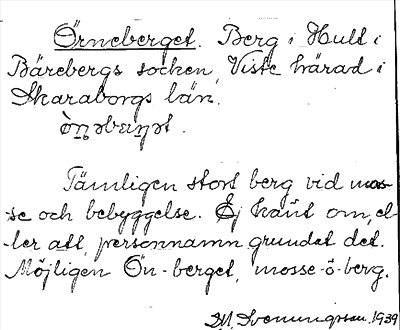 Örneberget. Berg i Hult i
Bärebergs socken, Viste härad i
Skaraborgs län.

Tämligen stort berg vid mos-
-se och bebyggelse. Ej känt om, el-
-ler att, personnamn grundat det.
Möjligen Ön-berget, mosse-ö-berg.
1939